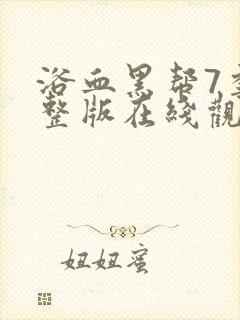 浴血黑帮7季
整版在线觀
妞妞蜜